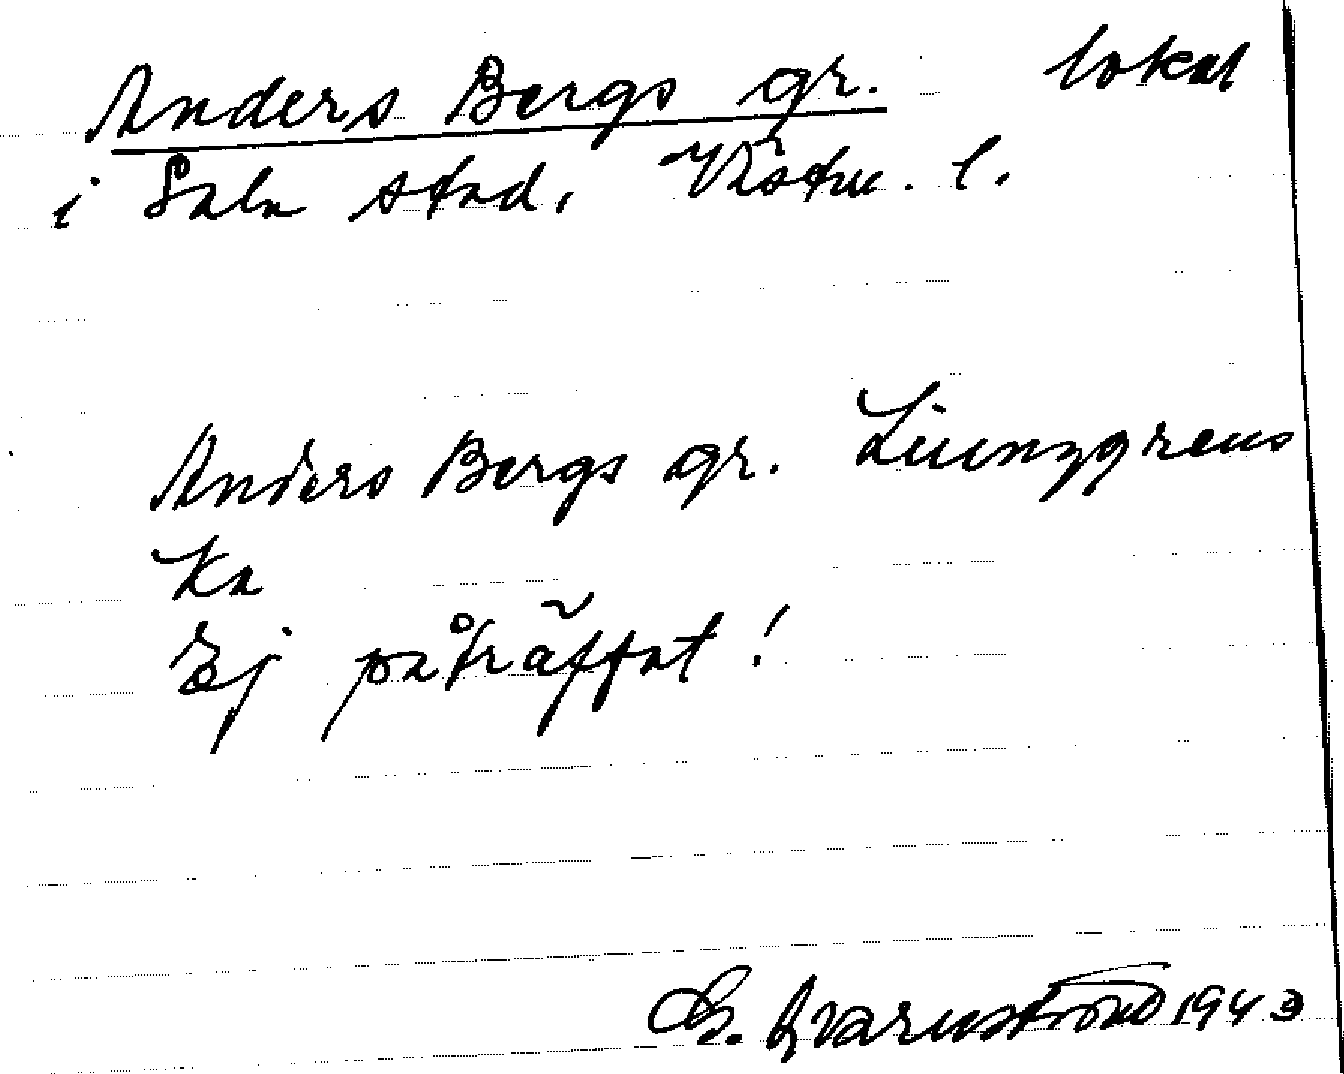 Anders Bergs gr. lokal
i Sala stad, Västm. l.
Anders Bergs gr. Liunggrens
Ka
Ej påträffat!
G. Qvarnström 1943